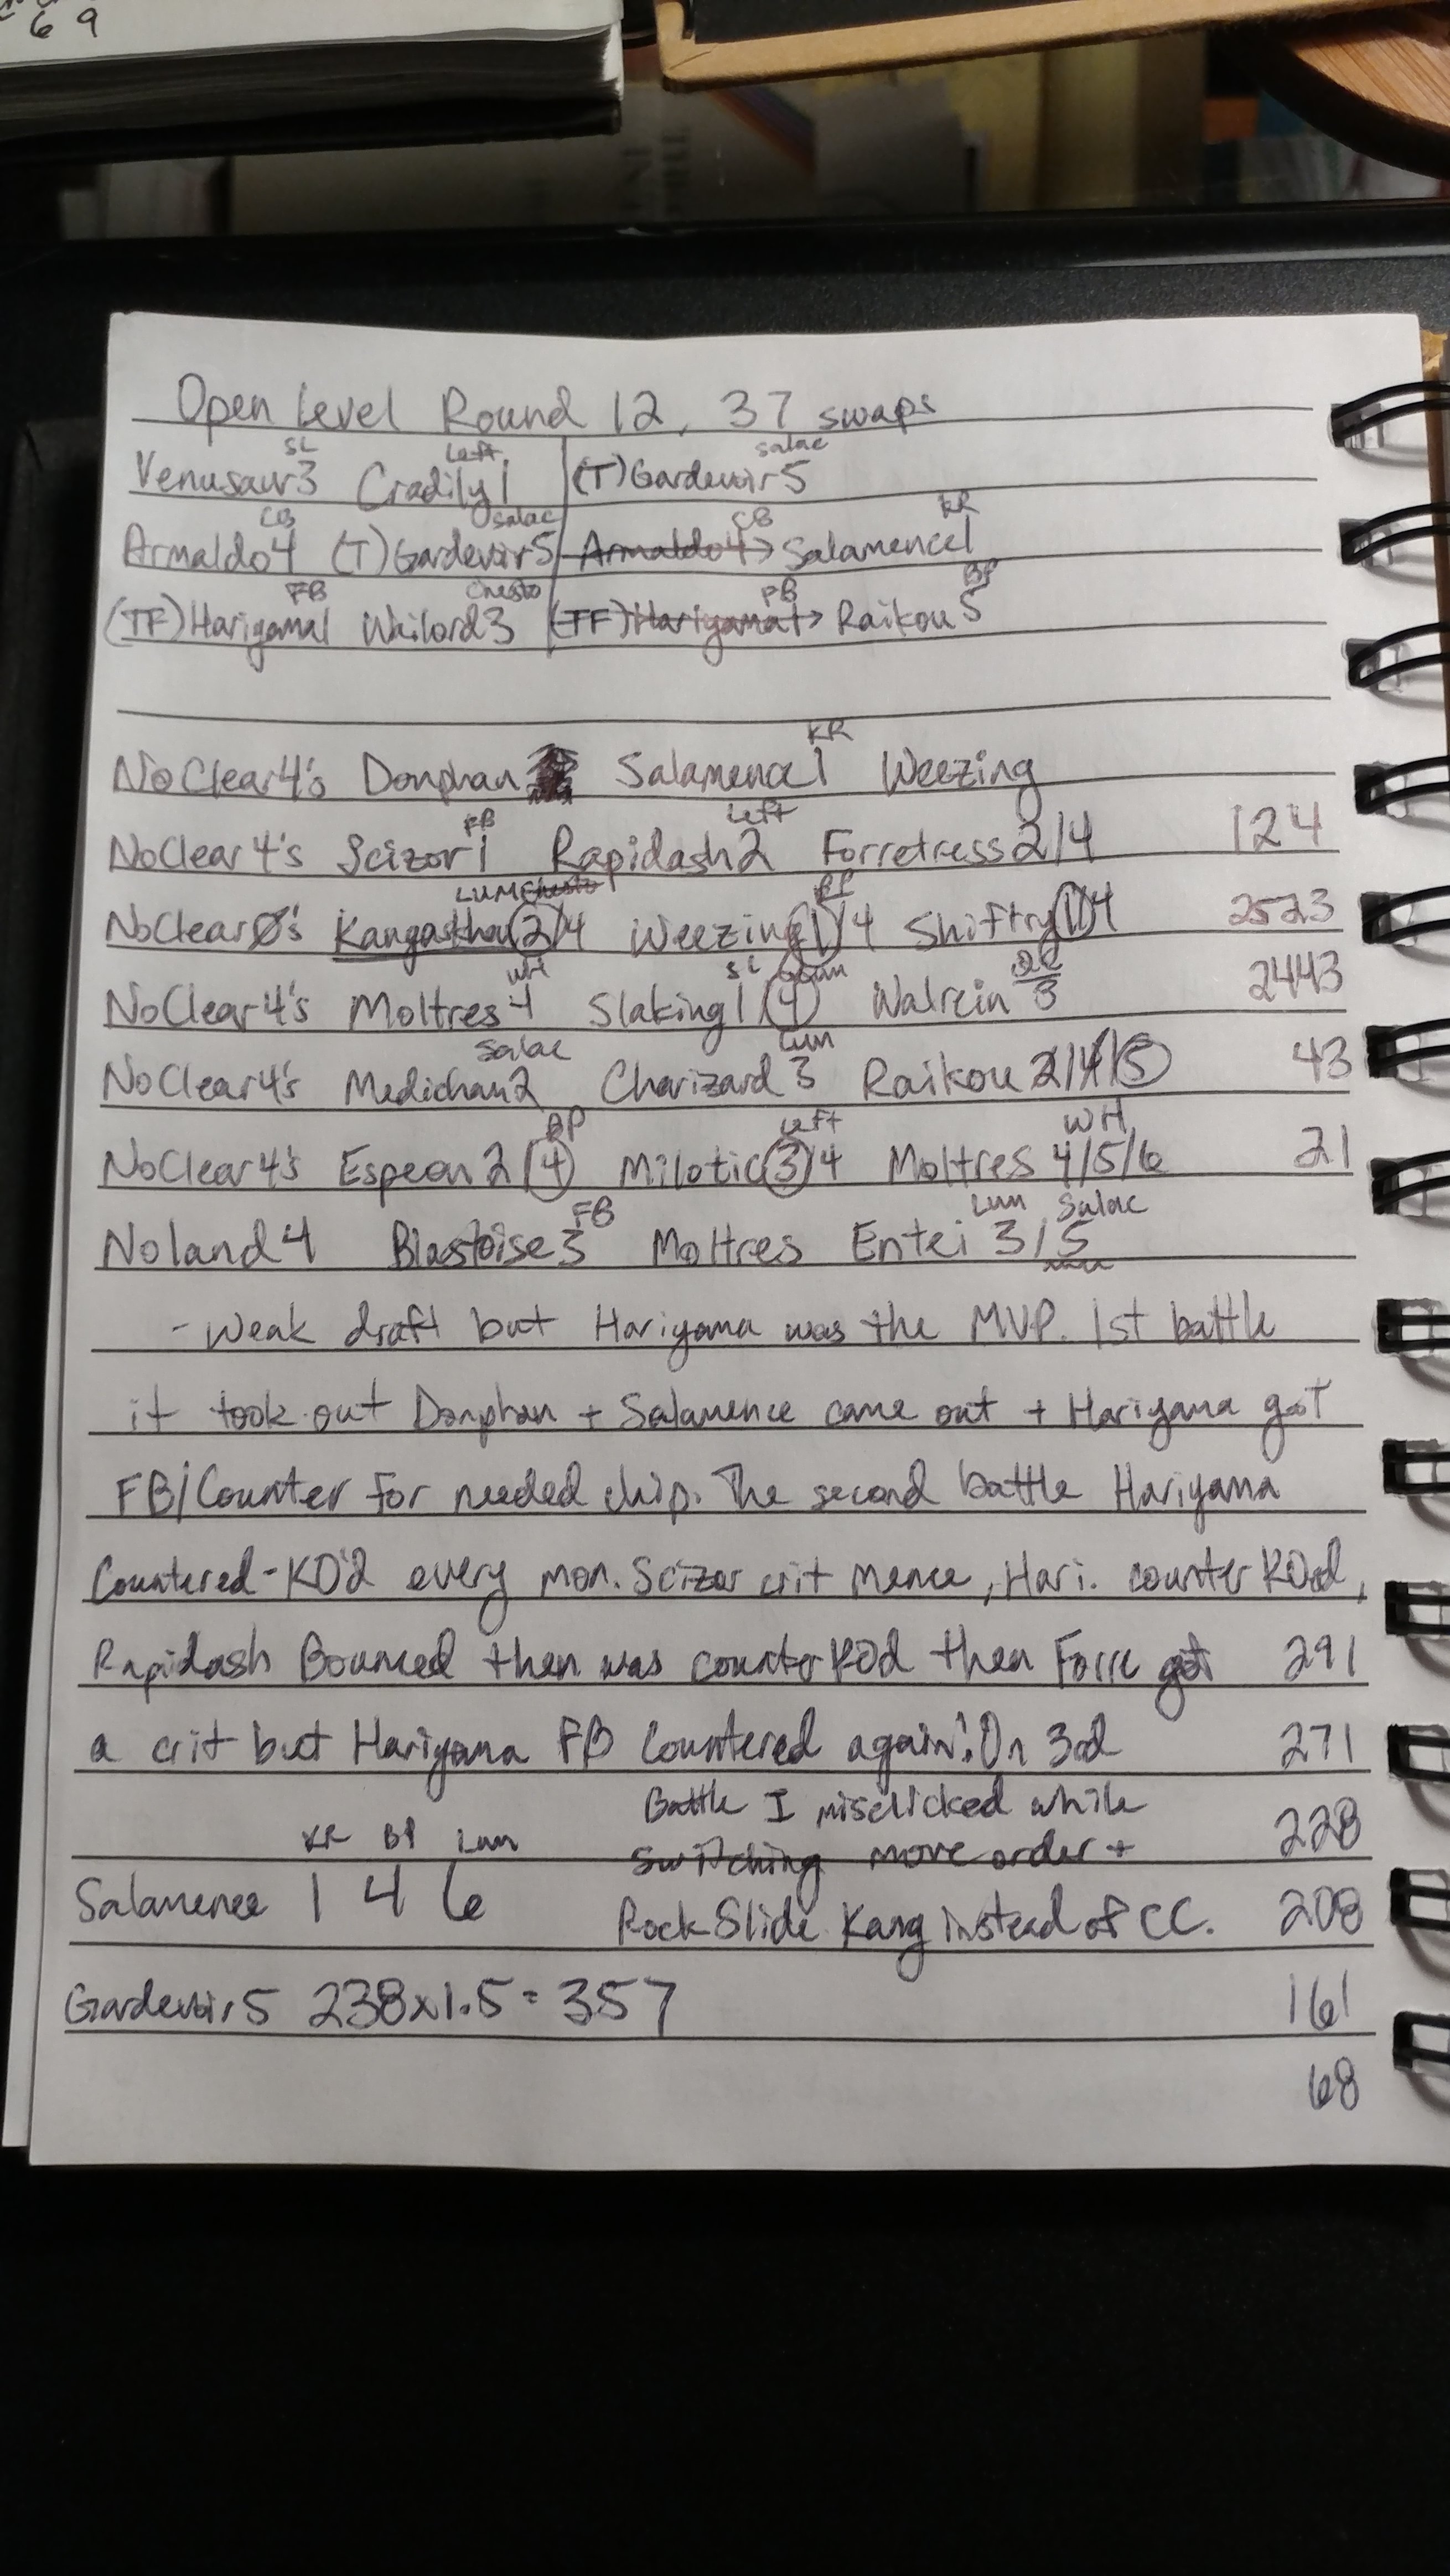 6 9
Open Level Round 12, 37 swaps
SL Left Salac
Venusaur3 Cradily1 (T)Gardevoir5
CB Salac CB KR
Armaldo4 (T)Gardevoir5 Armaldo4→ Salamence1
FB Chesto FB BP
(TF)Hariyama1 Wailord3 (TF)Hariyama1→ Raikou5
KR
NoClear4's Donphan Salamence1 Weezing
FB Left
NoClear4's Scizor1 Rapidash2 Forretress2/4 124
LUM Chesto BP
NoClear0's Kangaskhan2/4 Weezing1/4 Shiftry1/4 2523
WH SL Lum QC
NoClear4's Moltres4 Slaking1/4 Walrein 3 2443
Salac Lum
NoClear4's Medicham2 Charizard3 Raikou 2/4/5 43
BP Left WH
NoClear4's Espeon2/4 Milotic3/4 Moltres 4/5/6 21
FB Lum Salac
Noland4 Blastoise3 Moltres Entei 3/5
- Weak draft but Hariyama was the MVP. 1st battle
it took out Donphan + Salamence came out + Hariyama got
FB/Counter for needed chip. The second battle Hariyama
Countered-KO'd every mon. Scizor crit Mence, Hari. counter KOed,
Rapidash Bounced then was counter KOd then Forre got 291
a crit but Hariyama FB Countered again! On 3rd 271
Battle I misclicked while 228
KR BP Lum switching move order +
Salamence 1 4 6 Rock Slide Kang instead of CC. 208
Gardevoir5 238x1.5=357 161
68